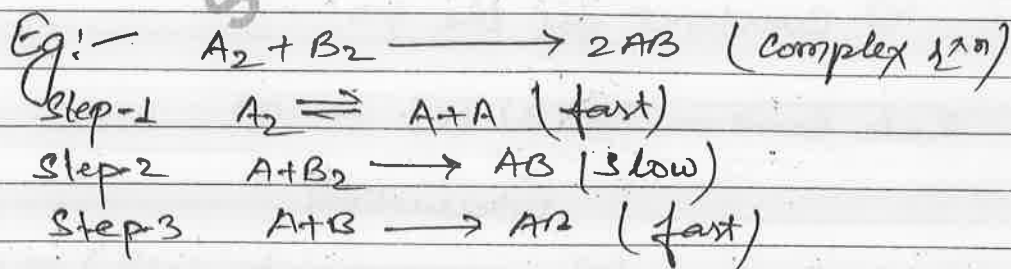 Eg:- A₂ + B₂ ⟶ 2AB (Complex rxn)
Step-1 A₂ ⇌ A+A (fast)
Step-2 A+B₂ ⟶ AB (slow)
Step-3 A+B ⟶ AB (fast)